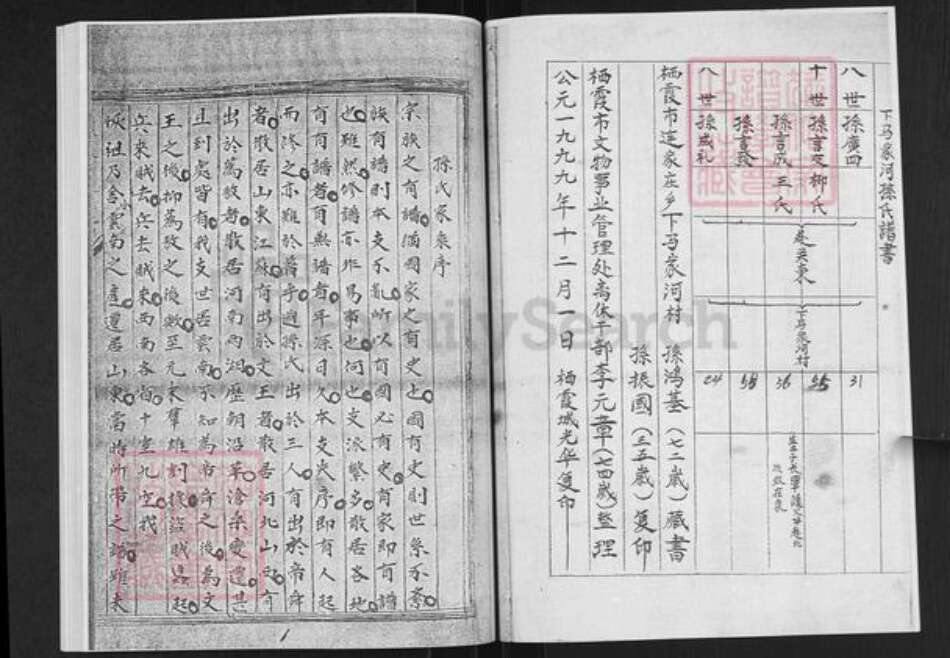 下马家河孫氏譜書
八世 孫廣四 31
十世 孫言交 柳氏
孫言成 王氏 56
孫言發 58
八世 孫成礼 24
是关東
下马家河村
栖霞市连家庄乡下马家河村 孫鴻基(七二歲)藏書
孫振國(三五歲)复印
栖霞市文物事业管理处离休干部李元章(七四歲)整理
公元一九九九年十二月一日 栖霞城光华复印
孫氏家乘序
宗族之有譜猶國家之有史也國有史則世系不紊
族有譜則本支不亂所以有國必有史有家即有譜
也雖然修譜亦非易事也何也支派繁多散居各地
有有譜者有無譜者年深日久本支失序即有人起
而修之亦難於着手週孫氏出於三人有出於帝舜
者散居山東江蘇有出於文王者散居河北山西有
出於蒍敖者散居河南两湖歷朝沿革滄桑变遷甚
且到处皆有我支世居雲南不知為帝舜之後為文
王之後抑蒍敖之後數至元末羣雄割據盜賊蜂起
兵來賊去兵去賊來西南各省十室九空我
始祖乃舍雲南之產遷居山東當時所帶之譜雖未
1
FamilySearch